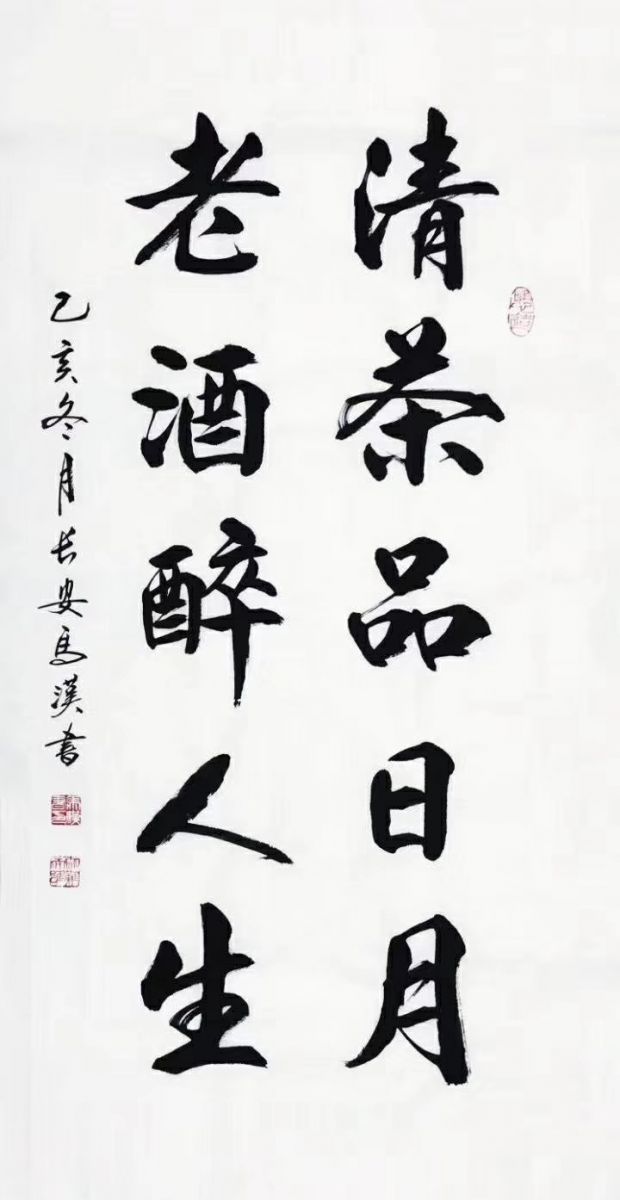 清茶品日月
老酒醉人生
乙亥冬月长安馬漢書